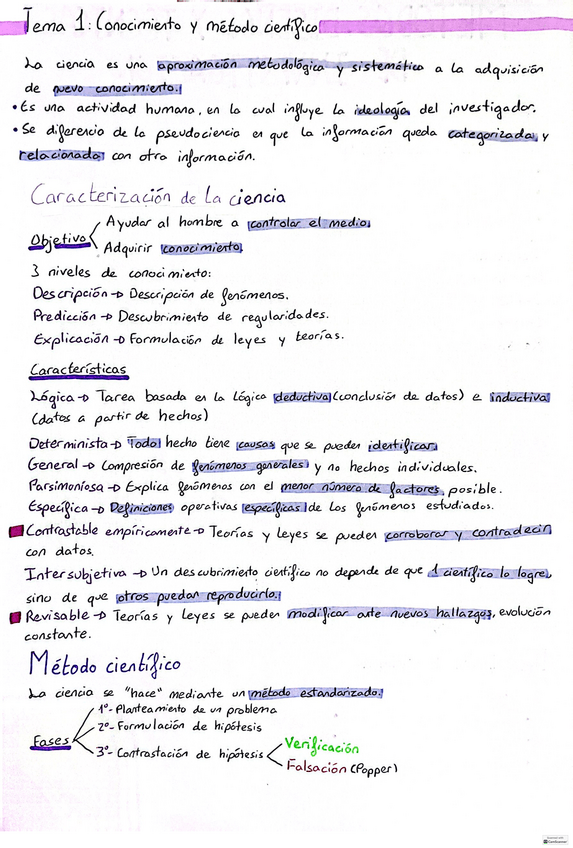 Tema 1: Conocimiento y método científico
La ciencia es una aproximación metodológica y sistemática a la adquisición
de nuevo conocimiento.
• Es una actividad humana, en la cual influye la ideología del investigador.
• Se diferencia de la pseudociencia en que la información queda categorizada y
relacionada con otra información.
Caracterización de la ciencia
Objetivo
Ayudar al hombre a controlar el medio.
Adquirir conocimiento.
3 niveles de conocimiento:
Descripción → Descripción de fenómenos.
Predicción → Descubrimiento de regularidades.
Explicación → Formulación de leyes y teorías.
Características
Lógica → Tarea basada en la lógica deductiva (conclusión de datos) e inductiva
(datos a partir de hechos)
Determinista → Todo hecho tiene causas que se pueden identificar.
General → Compresión de fenómenos generales y no hechos individuales.
Parsimoniosa → Explica fenómenos con el menor número de factores posible.
Específica → Definiciones operativas específicas de los fenómenos estudiados.
Contrastable empíricamente → Teorías y leyes se pueden corroborar y contradecir
con datos.
Intersubjetiva → Un descubrimiento científico no depende de que 1 científico lo logre,
sino de que otros puedan reproducirlo.
Revisable → Teorías y leyes se pueden modificar ante nuevos hallazgos, evolución
constante.
Método científico
La ciencia se "hace" mediante un método estandarizado.
Fases
1º- Planteamiento de un problema
2º- Formulación de hipótesis
3º- Contrastación de hipótesis
Verificación
Falsación (Popper)
CamScanner